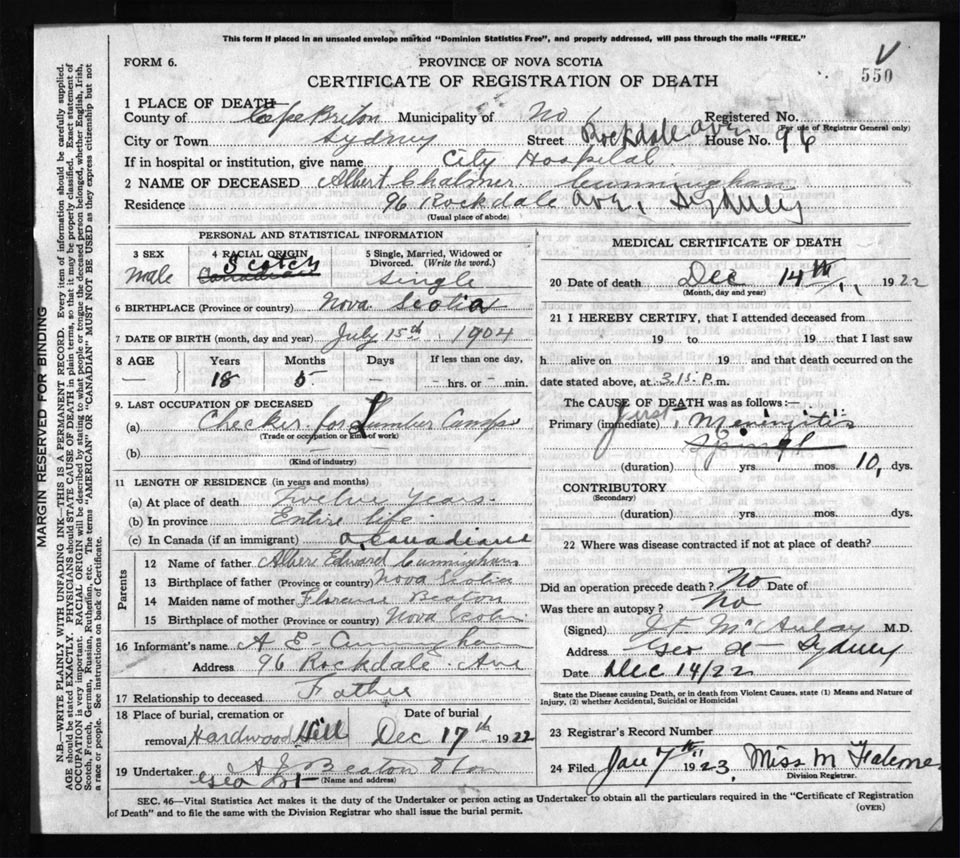 This form if placed in an unsealed envelope marked "Dominion Statistics Free", and properly addressed, will pass through the mails "FREE."
FORM 6.
PROVINCE OF NOVA SCOTIA
550
CERTIFICATE OF REGISTRATION OF DEATH
1 PLACE OF DEATH
County of Cape Briton Municipality of No 1 Registered No.
(For use of Registrar General only)
City or Town Sydney Street Rockdale Ave. House No. 96
If in hospital or institution, give name City Hospital
2 NAME OF DECEASED Albert Chalmer Cunningham
Residence 96 Rockdale Ave, Sydney
(Usual place of abode)
PERSONAL AND STATISTICAL INFORMATION
3 SEX
Male
4 RACIAL ORIGIN
Scotch
Canadian
5 Single, Married, Widowed or
Divorced. (Write the word.)
Single
6 BIRTHPLACE (Province or country) Nova Scotia
7 DATE OF BIRTH (month, day and year) July 15th 1904
8 AGE
Years
18
Months
5
Days
—
If less than one day,
– hrs. or – min.
9. LAST OCCUPATION OF DECEASED
(a) Checker for Lumber Camps
(Trade or occupation or kind of work)
(b)
(Kind of industry)
11 LENGTH OF RESIDENCE (in years and months)
(a) At place of death Twelve Years.
(b) In province Entire life
(c) In Canada (if an immigrant) a Canadian
Parents
12 Name of father Albert Edward Cunningham
13 Birthplace of father (Province or country) Nova Scotia
14 Maiden name of mother Florence Beaton
15 Birthplace of mother (Province or country) Nova Scotia
16 Informant's name A E Cunningham
Address 96 Rockdale Ave
17 Relationship to deceased Father
18 Place of burial, cremation or
removal Hardwood Hill
Date of burial
Dec 17th 1922
19 Undertaker A J Beaton & Son
(Name and address)
Geo St
MEDICAL CERTIFICATE OF DEATH
20 Date of death Dec 14th 1922
(Month, day and year)
21 I HEREBY CERTIFY, that I attended deceased from
19 to 19 that I last saw
h alive on 19 and that death occurred on
date stated above, at 3.15 P. m.
The CAUSE OF DEATH was as follows:—
Primary (immediate) Meningitis
Spinal
(duration) yrs mos. 10, dys.
CONTRIBUTORY
(Secondary)
(duration) yrs. mos. dys.
22 Where was disease contracted if not at place of death?
Did an operation precede death? No Date of
Was there an autopsy? No
(Signed) J F McAulay M.D.
Address Geo St Sydney
Date Dec 14/22
State the Disease causing Death, or in death from Violent Causes, state (1) Means and Nature of
Injury, (2) whether Accidental, Suicidal or Homicidal
23 Registrar's Record Number
24 Filed Jan 7th 1923, Miss M
Division Registrar.
SEC. 46—Vital Statistics Act makes it the duty of the Undertaker or person acting as Undertaker to obtain all the particulars required in the "Certificate of Registration
of Death" and to file the same with the Division Registrar who shall issue the burial permit.
(OVER)
MARGIN RESERVED FOR BINDING
N.B.—WRITE PLAINLY WITH UNFADING INK—THIS IS A PERMANENT RECORD. Every item of information should be carefully supplied.
AGE should be stated EXACTLY. PHYSICIANS should STATE CAUSE OF DEATH in plain terms, so that it may be properly classified. Exact statement of
OCCUPATION is very important. RACIAL ORIGIN will be described by stating to what people or tongue the deceased person belonged, whether English, Irish,
Scotch, French, German, Russian, Ruthenian, etc. The terms "AMERICAN" or "CANADIAN" MUST NOT BE USED as they express citizenship but not
a race or people. See instructions on back of Certificate.